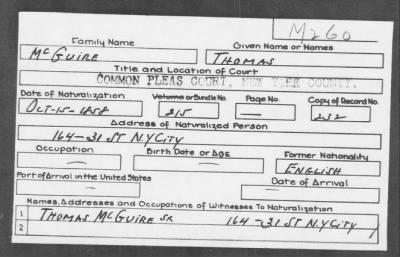 M260
Family Name Given Name or Names
McGUIRE THOMAS
Title and Location of Court
COMMON PLEAS COURT, NEW YORK COUNTY.
Date of Naturalization Volume or Bundle No. Page No. Copy of Record No.
OCT-15-1858 215 — 232
Address of Naturalized Person
164-31 ST N.Y.CITY
Occupation Birth Date or Age Former Nationality
— — ENGLISH
Port of Arrival in the United States Date of Arrival
— —
Names, Addresses and Occupations of Witnesses To Naturalization
1 THOMAS McGUIRE SR 164-31 ST N.Y.CITY
2